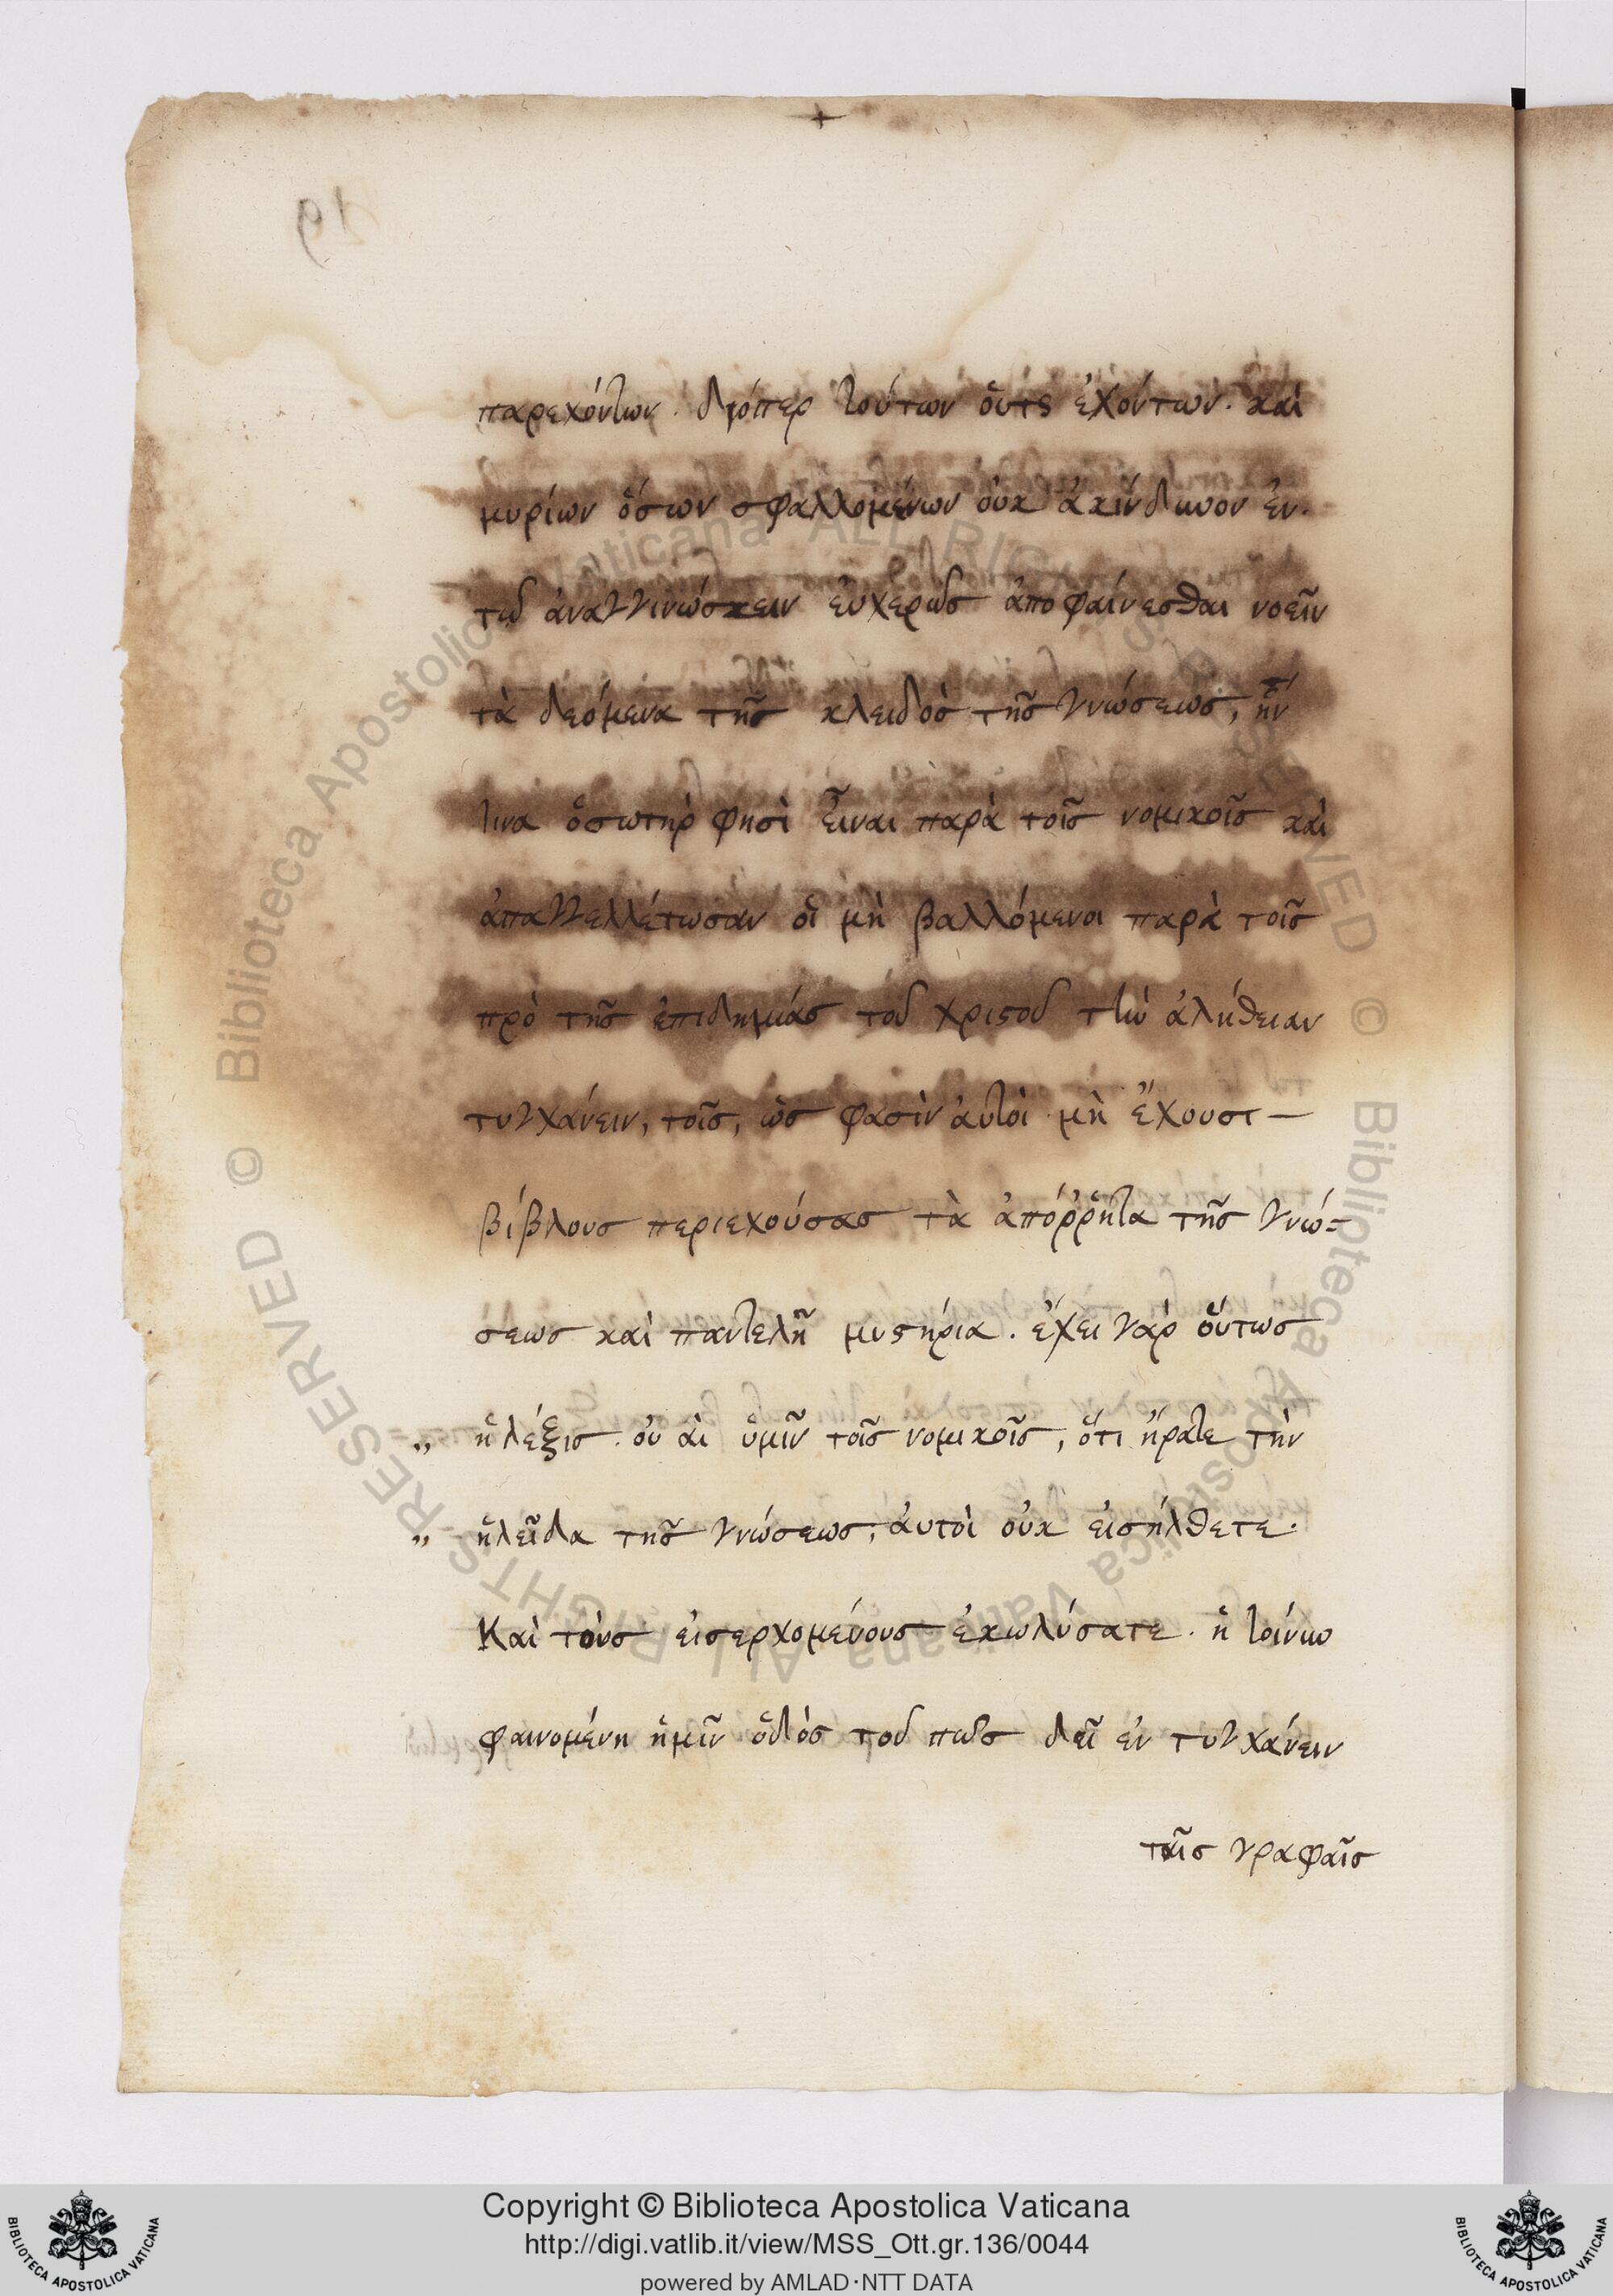 παρεχόντων. διόπερ τούτων ὅυτς ἐχόντων. καὶ
μυρίων ὅσων σφαλλομένων ὀυκ ἀκίνδυνον ἐν.
τῶ ἀναγγινώσκειν ἐυχερῶς ἀποφαίνεσθαι νοεῖν
τὰ δεόμενα τῆς κλειδὸς τῆς γνώσεως, ἥν
τινα ὁσωτὴρ φησὶ εἶναι παρὰ τοῖς νομικοῖς καὶ
ἀπαγγελλέτωσαν οἱ μὴ βαλλόμενοι παρὰ τοῖς
πρὸ τῆς ἐπιδημίας τοῦ χριστοῦ τὴν ἀλήθειαν
τυγχάνειν, τοῖς, ὡς φασὶν ἀυτοὶ μὴ ἔχουσι —
βίβλους περιεχούσας τὰ ἀπόῤῥητα τῆς γνώ=
σεως καὶ παντελῆ μυστήρια. ἔχει γὰρ ὅυτως
„ ἡ λέξις. ὀυ ἀὶ ὑμῖν τοῖς νομικοῖς, ὅτι ἤρατε τὴν
„ κλεῖδα τῆς γνώσεως, ἀυτοὶ ὀυκ εἰσήλθετε.
Καὶ τοὺς εἰσερχομένους ἐκωλύσατε. ἡ τοίνυν
φαινομένη ἡμῖν ὁδὸς τοῦ πῶς δεῖ ἐν τυγχάνειν
ταῖς γραφαῖς
19
Copyright © Biblioteca Apostolica Vaticana
http://digi.vatlib.it/view/MSS_Ott.gr.136/0044
powered by AMLAD·NTT DATA
BIBLIOTECA APOSTOLICA VATICANA
BIBLIOTECA APOSTOLICA VATICANA
© Biblioteca Apostolica Vaticana ALL RIGHTS RESERVED © Biblioteca Apostolica Vaticana ALL RIGHTS RESERVED